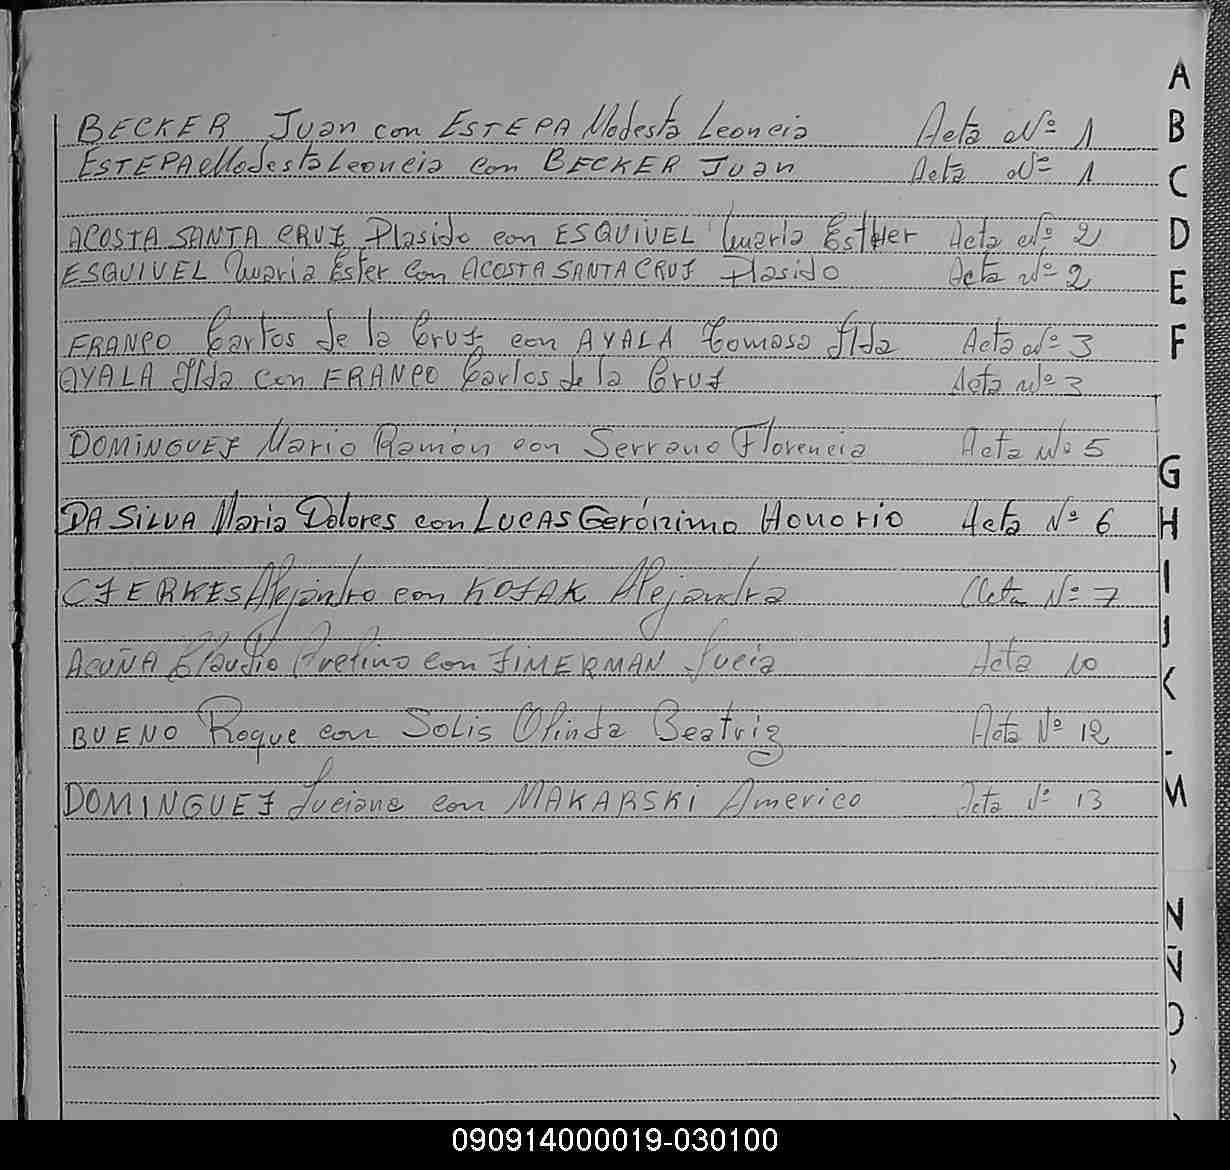 BECKER Juan con ESTEPA Modesta Leoncia Acta Nº 1
ESTEPA Modesta Leoncia con BECKER Juan Acta Nº 1
ACOSTA SANTA CRUZ Plasido con ESQUIVEL Maria Esther Acta Nº 2
ESQUIVEL Maria Ester con ACOSTA SANTA CRUZ Plasido Acta Nº 2
FRANCO Carlos de la Cruz con AYALA Tomasa Ilda Acta Nº 3
AYALA Ilda con FRANCO Carlos de la Cruz Acta Nº 3
DOMINGUEZ Mario Ramón con Serrano Florencia Acta Nº 5
DA SILVA Maria Dolores con LUCAS Gerónimo Honorio Acta Nº 6
CZERKES Alejandro con KOZAK Alejandra Acta Nº 7
ACUÑA Claudio Avelino con ZIMERMAN Lucia Acta 10
BUENO Roque con Solis Olinda Beatriz Acta Nº 12
DOMINGUEZ Luciana con MAKARSKI Americo Acta Nº 13
A
B
C
D
E
F
G
H
I
J
K
M
N
Ñ
O
090914000019-030100